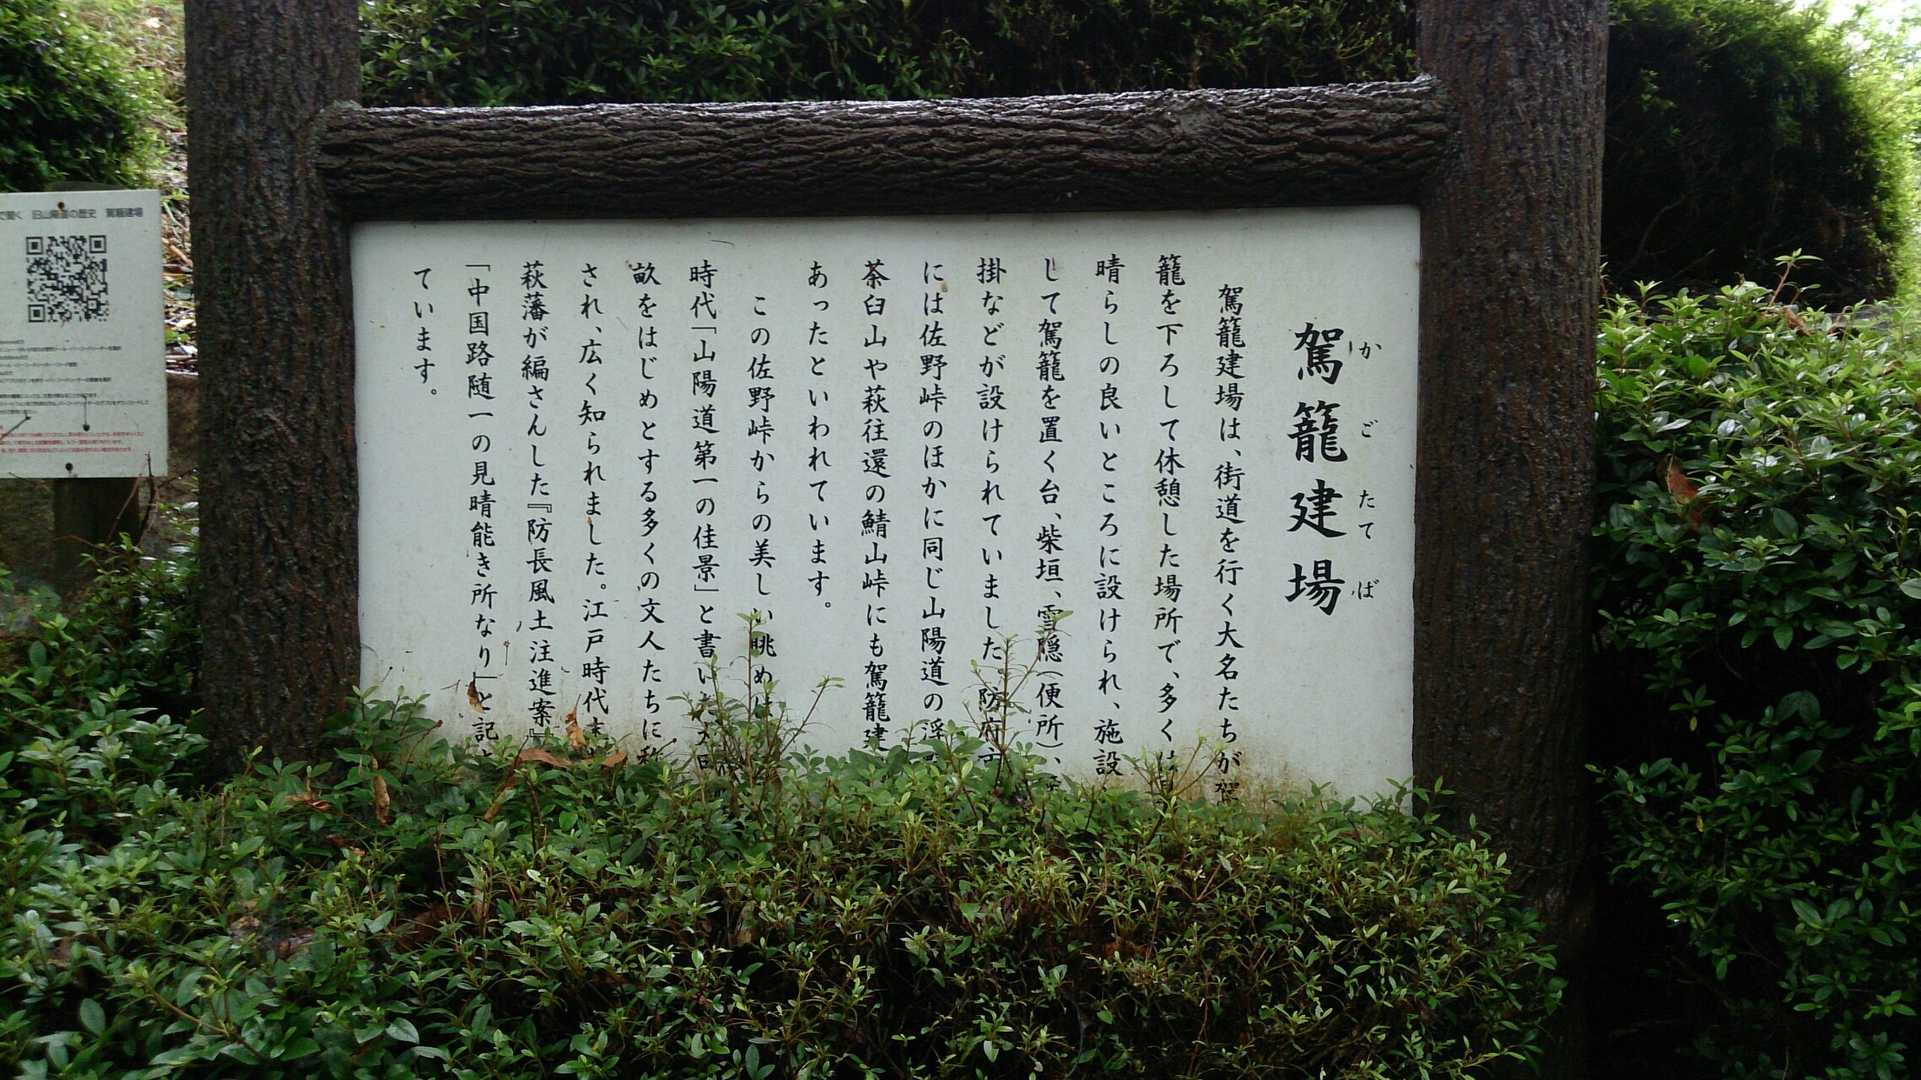 駕籠建場
かごたてば
駕籠建場は、街道を行く大名たちが駕
籠を下ろして休憩した場所で、多くは
晴らしの良いところに設けられ、施設
して駕籠を置く台、柴垣、雪隠(便所)、
掛などが設けられていました。防府市
には佐野峠のほかに同じ山陽道の浮
茶臼山や萩往還の鯖山峠にも駕籠建
あったといわれています。
この佐野峠からの美しい眺めは
時代「山陽道第一の佳景」と書いた
畝をはじめとする多くの文人たちに
され、広く知られました。江戸時代
萩藩が編さんした『防長風土注進案』
「中国路随一の見晴能き所なり」と記
ています。
で聞く 旧山陽道の歴史 駕籠建場